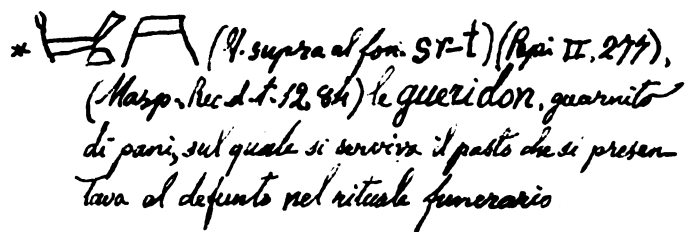 * (V. supra al fon. sr-t) (Pepi II, 277),
(Masp. Rec. d. t. 12, 84) le gueridon, guarnito
di pani, sul quale si serviva il pasto che si presen-
tava al defunto nel rituale funerario